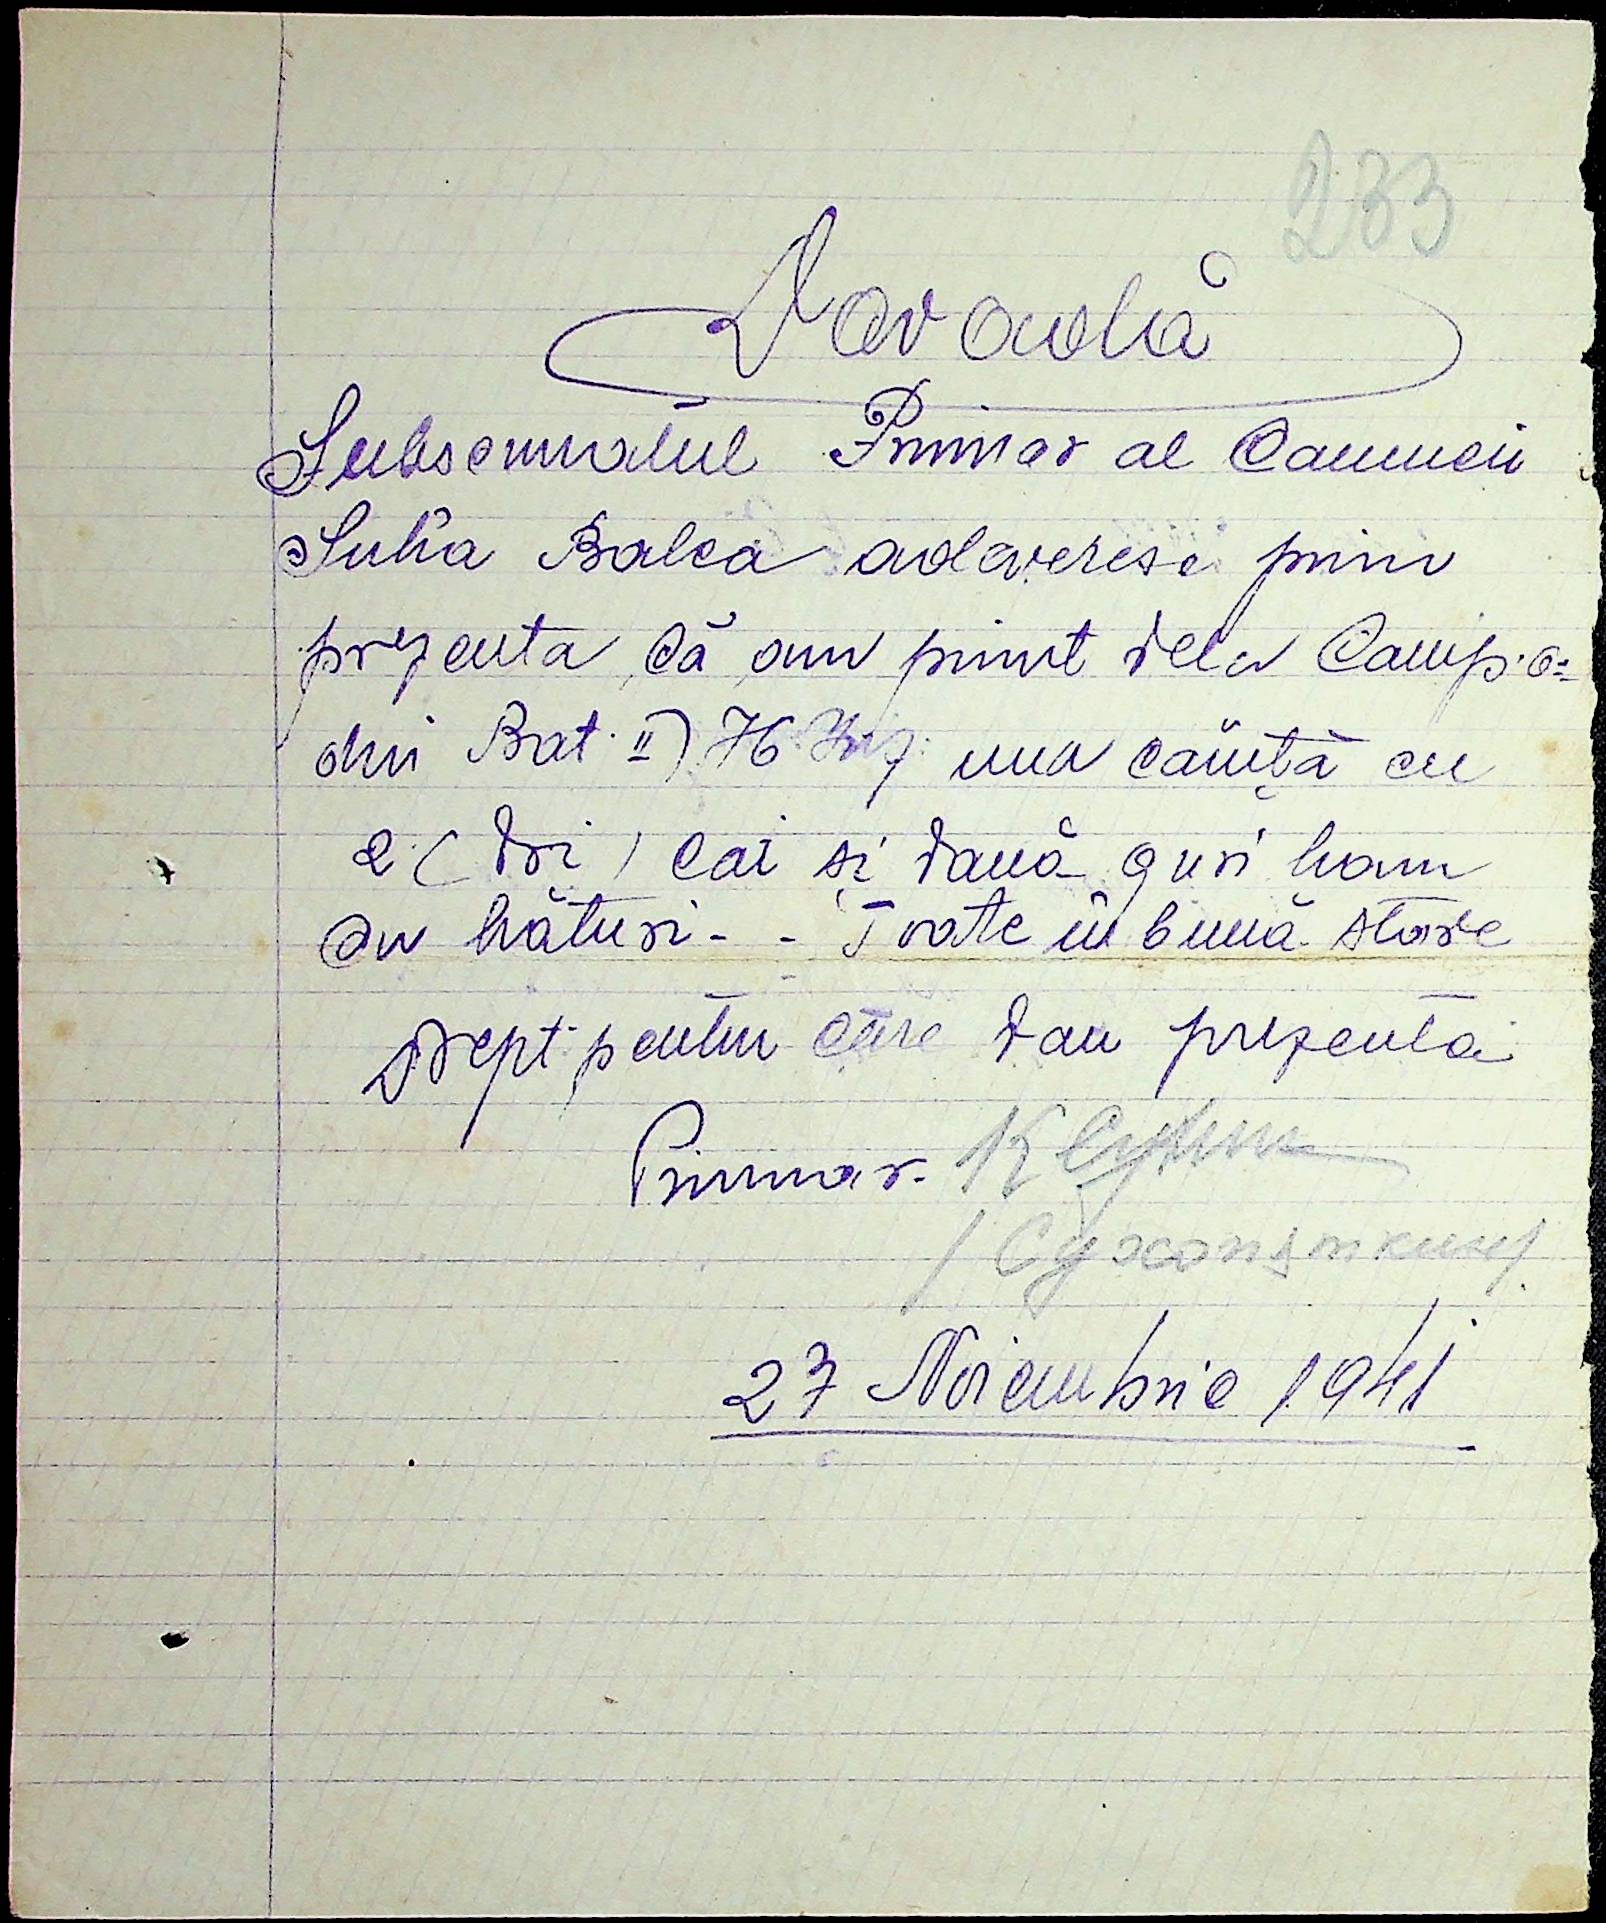 233
Dovadă
Subsemnatul Primar al Comunei
Suha Balca adeveresc prin
prezenta, că am primit dela Comp. a=
din Bat. II) 76 Inf una căruță cu
2 (doi) cai și două guri ham
cu hățuri - - Toate în bună stare
Drept pentru care dau prezenta
Primar.
27 Noiembrie 1941